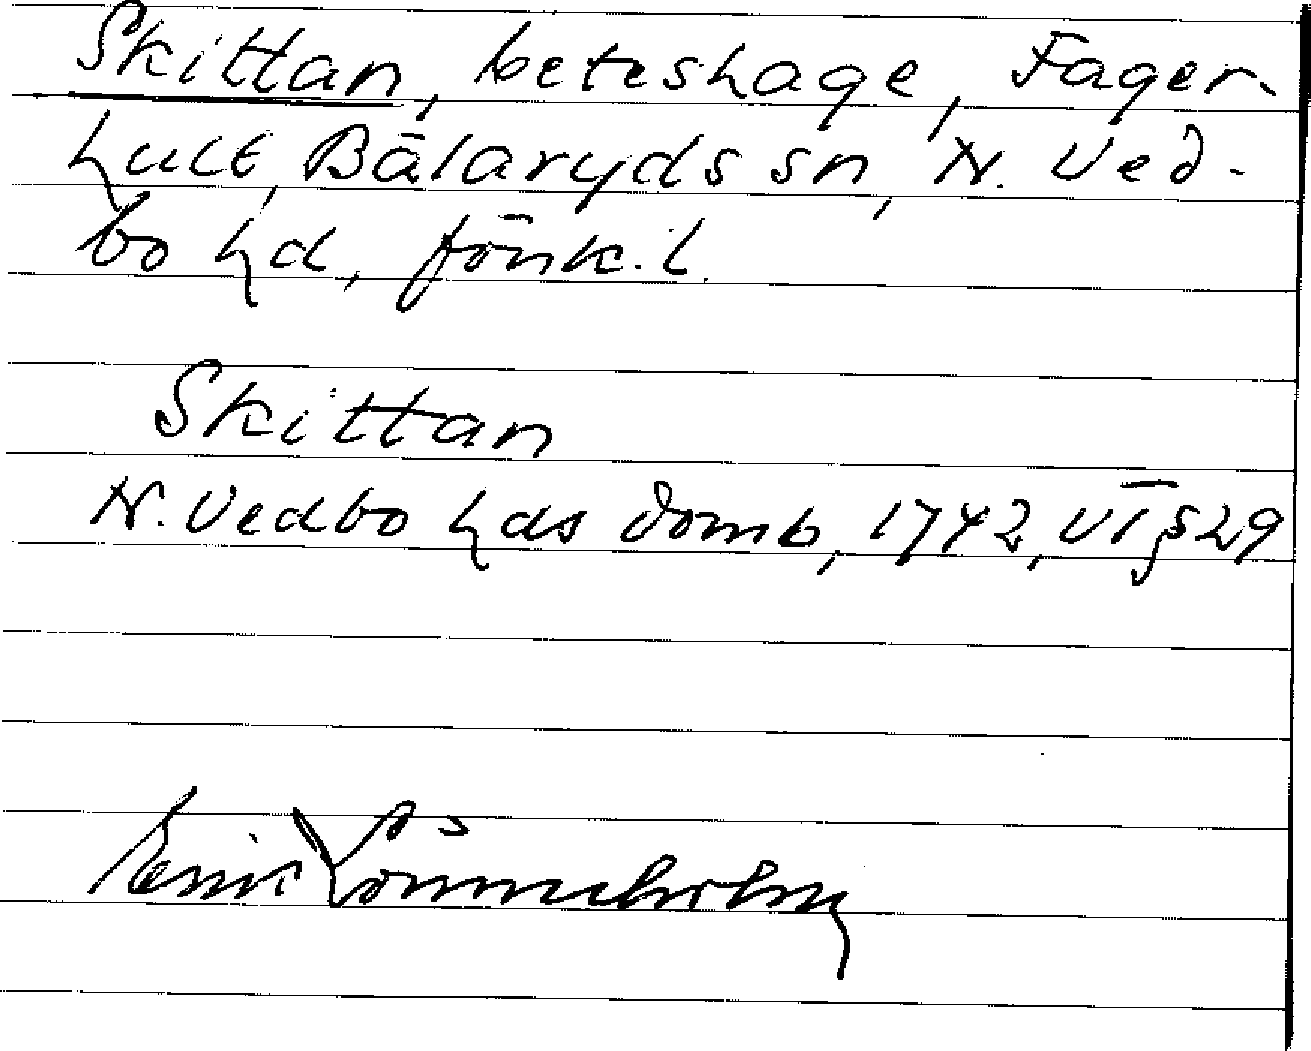 Skittan, beteshage, Fager-
hult, Bälaryds sn, N. Ved-
bo hd, Jönk. l.
Skittan
N. Vedbo hds domb, 1742, VT § 29